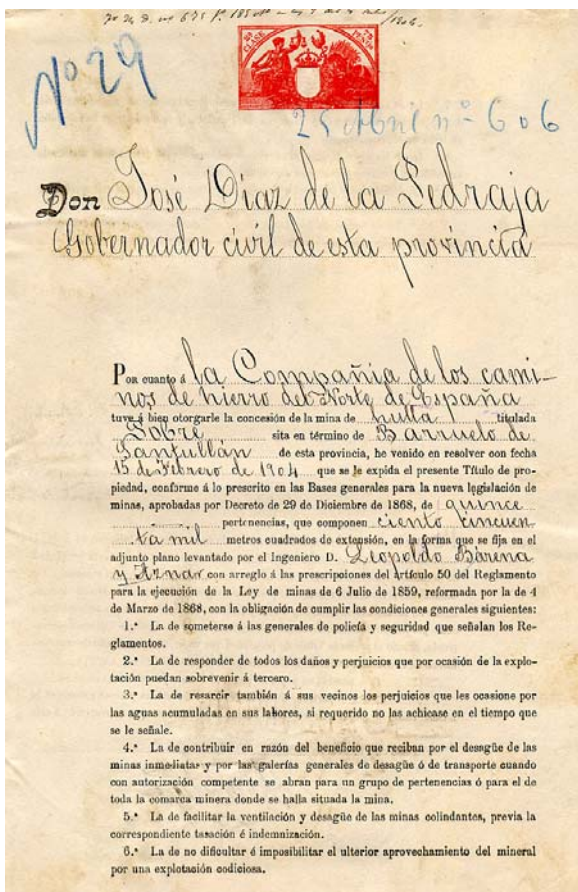 Nº 29
CLASE
25 Abril nº 606
Don José Díaz de la Pedraja
Gobernador civil de esta provincia
Por cuanto á la Compañia de los cami-
nos de hierro del Norte de España
tuve á bien otorgarle la concesión de la mina de hulla titulada
Sobre sita en término de Barruelo de
Santullán de esta provincia, he venido en resolver con fecha
15 de Febrero de 1904 que se le expida el presente Título de pro-
piedad, conforme á lo prescrito en las Bases generales para la nueva legislación de
minas, aprobadas por Decreto de 29 de Diciembre de 1868, de quince
pertenencias, que componen ciento cincuen
ta mil metros cuadrados de extensión, en la forma que se fija en el
adjunto plano levantado por el Ingeniero D. Leopoldo Bárcena
y Aznar con arreglo á las prescripciones del artículo 50 del Reglamento
para la ejecución de la Ley de minas de 6 Julio de 1859, reformada por la de 4
de Marzo de 1868, con la obligación de cumplir las condiciones generales siguientes:
1.ª La de someterse á las generales de policía y seguridad que señalan los Re-
glamentos.
2.ª La de responder de todos los daños y perjuicios que por ocasión de la explo-
tación puedan sobrevenir á tercero.
3.ª La de resarcir también á sus vecinos los perjuicios que les ocasione por
las aguas acumuladas en sus labores, si requerido no las achicase en el tiempo que
se le señale.
4.ª La de contribuir en razón del beneficio que reciban por el desagüe de las
minas inmediatas y por las galerías generales de desagüe ó de transporte cuando
con autorización competente se abran para un grupo de pertenencias ó para el de
toda la comarca minera donde se halla situada la mina.
5.ª La de facilitar la ventilación y desagüe de las minas colindantes, previa la
correspondiente tasación é indemnización.
6.ª La de no dificultar é imposibilitar el ulterior aprovechamiento del mineral
por una explotación codiciosa.